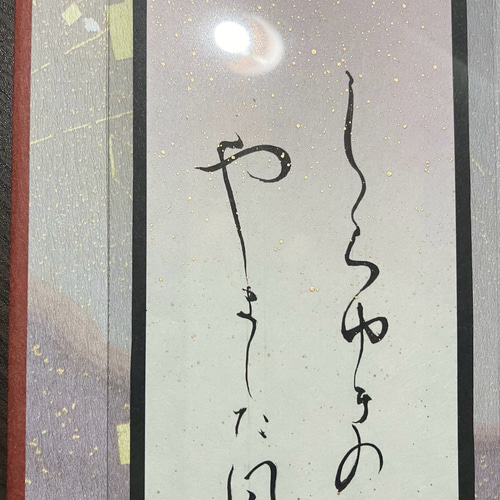 しらゆきの
やました